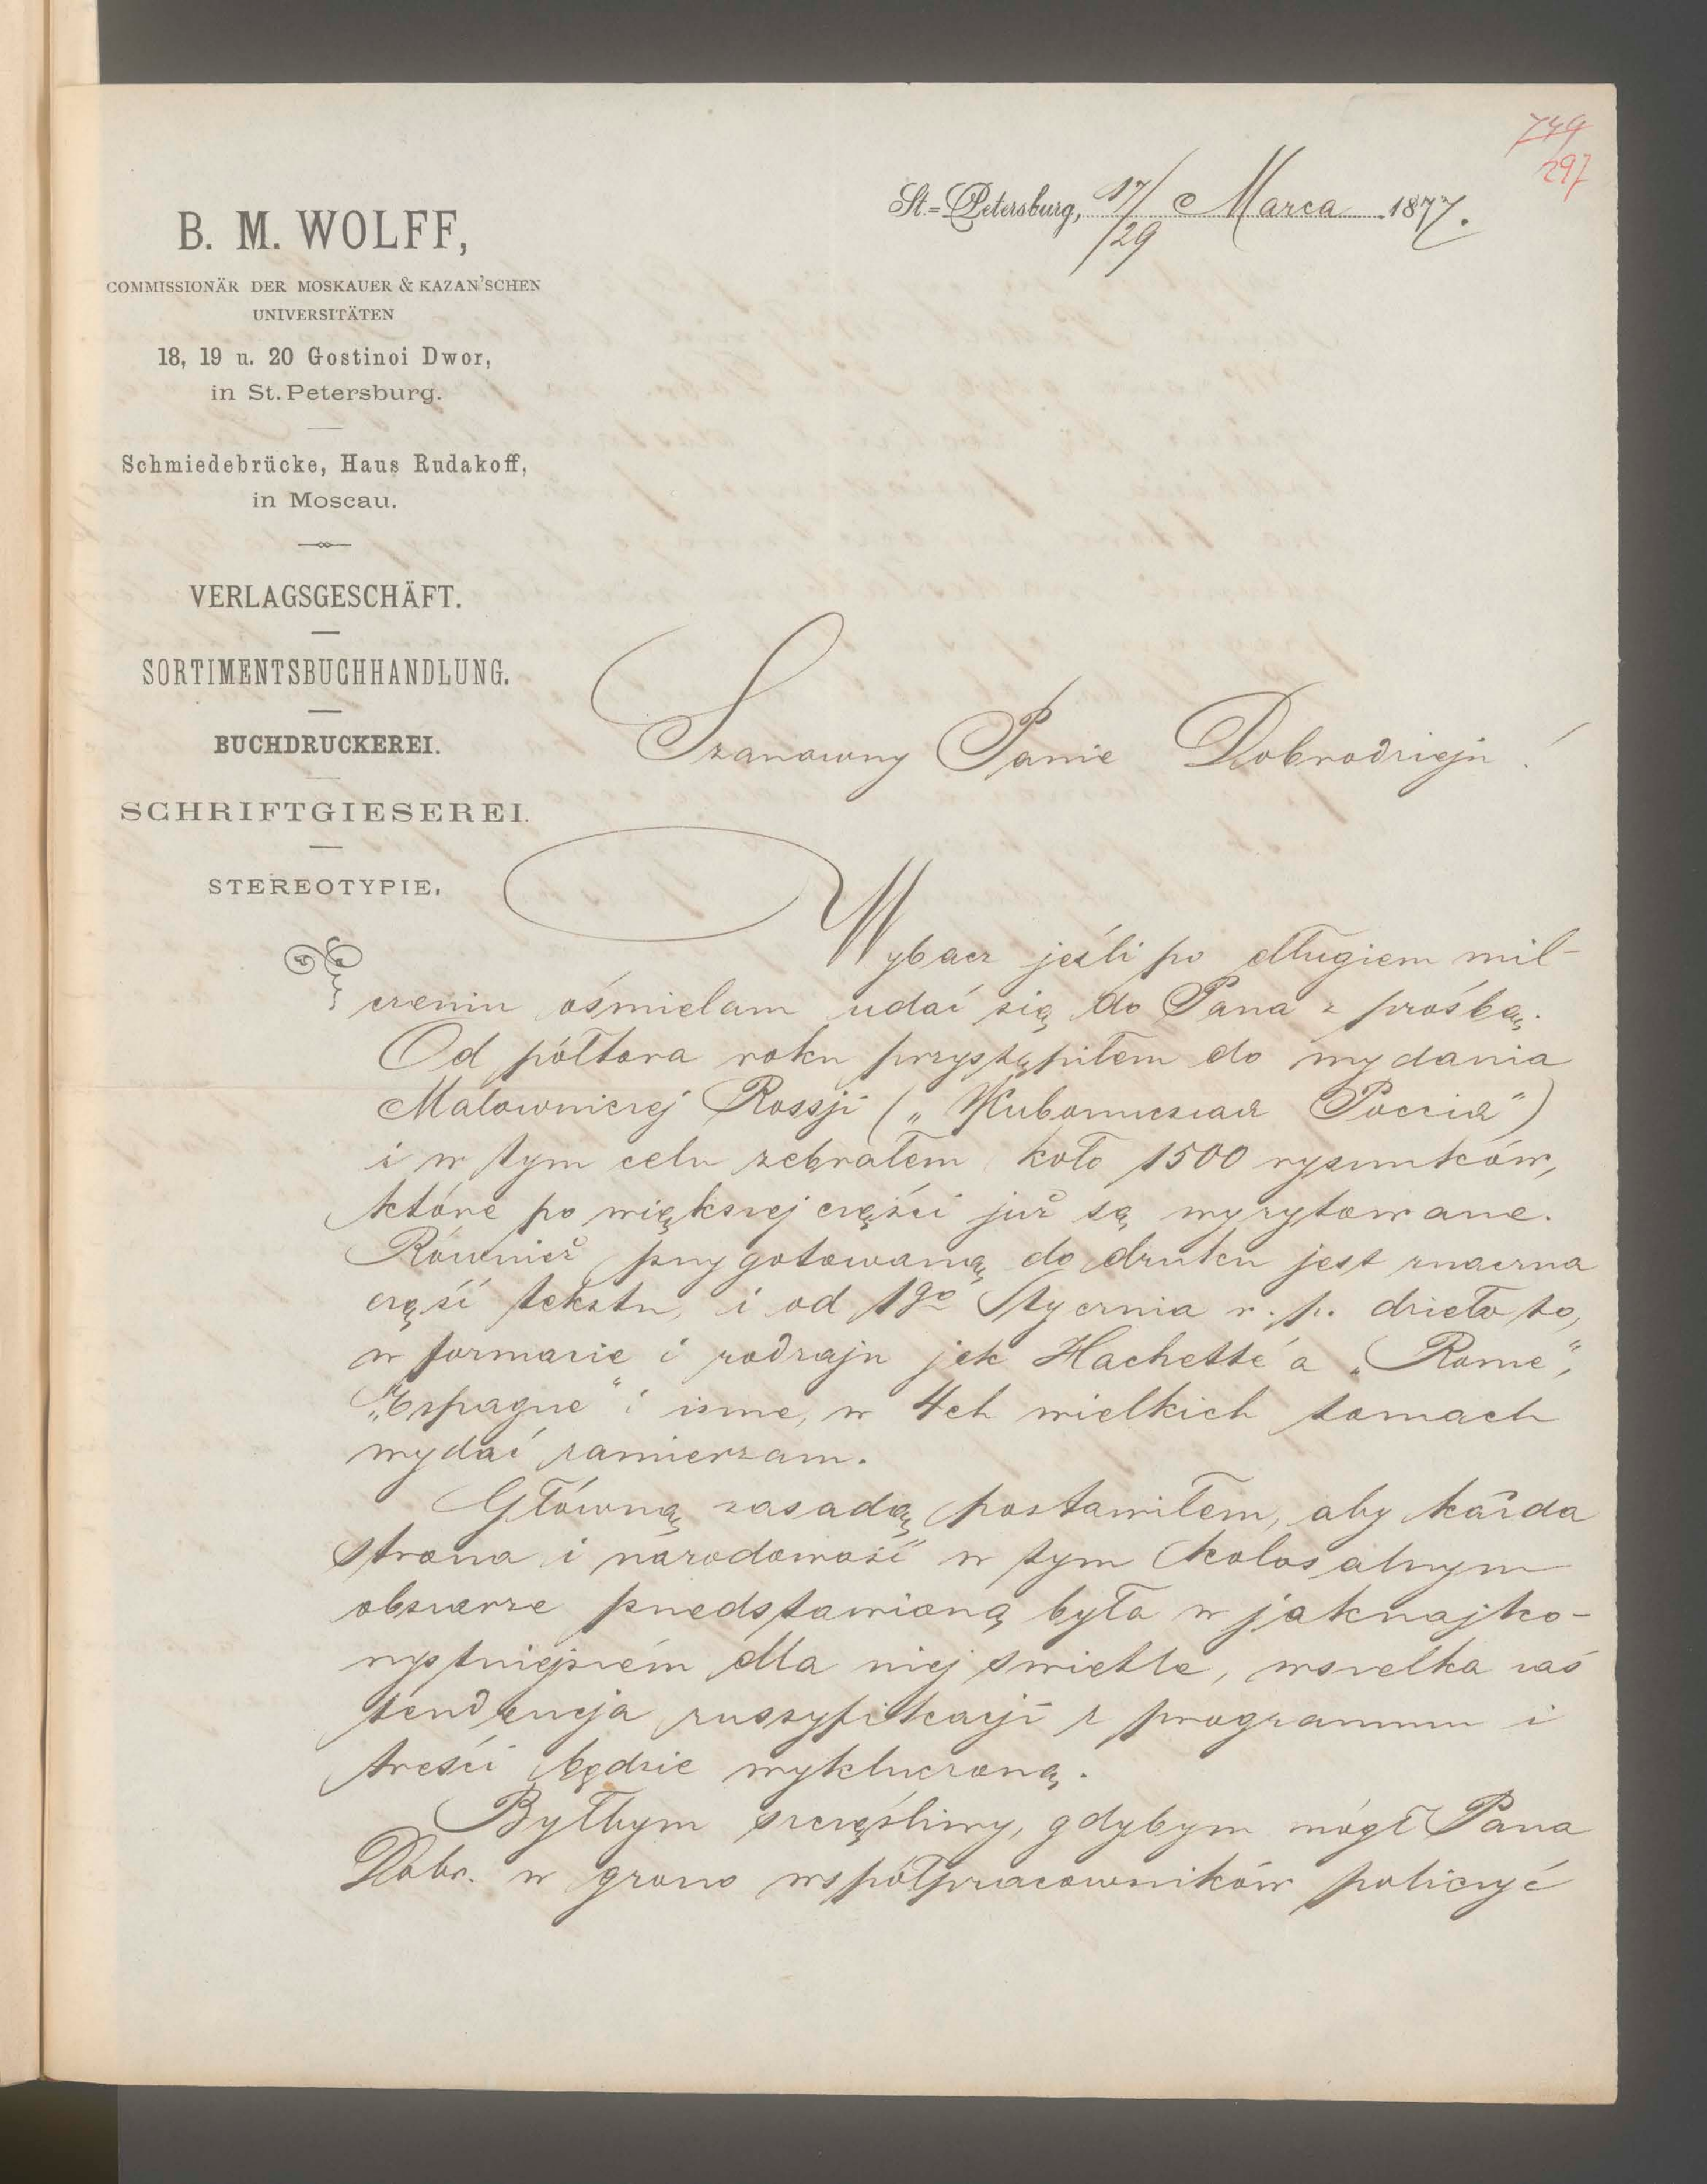 749
297
St.-Petersburg, 17/29 Marca 1877.
B. M. WOLFF,
COMMISSIONÄR DER MOSKAUER & KAZAN'SCHEN
UNIVERSITÄTEN
18, 19 u. 20 Gostinoi Dwor,
in St. Petersburg.
Schmiedebrücke, Haus Rudakoff,
in Moscau.
VERLAGSGESCHÄFT.
SORTIMENTSBUCHHANDLUNG.
BUCHDRUCKEREI.
SCHRIFTGIESEREI.
STEREOTYPIE.
Szanowny Panie Dobrodzieju!
Wybacz jeśli po długiem mil-
czeniu ośmielam udać się do Pana z prośbą.
Od półtora roku przystąpiłem do wydania
Malowniczej Rossji („Живописная Россия")
i w tym celu zebrałem koło 1500 rysunków,
które po większej części już są wyrytowane.
Również przygotowaną do druku jest znaczna
część tekstu, i od 1go Stycznia r. p. dzieło to,
w formacie i rodzaju jak Hachette'a „Rome",
„Espagne" i inne, w 4ch wielkich tomach
wydać zamierzam.
Główną zasadą postawiłem, aby każda
strona i narodowość w tym kolosalnym
obszarze przedstawioną była w jaknajko-
rzystniejszém dla niej świetle, wszelka zaś
tendencja russyfikacji z programmu i
treści będzie wykluczoną.
Byłbym szczęśliwy, gdybym mógł Pana
Dobr. w grono współpracowników policzyć